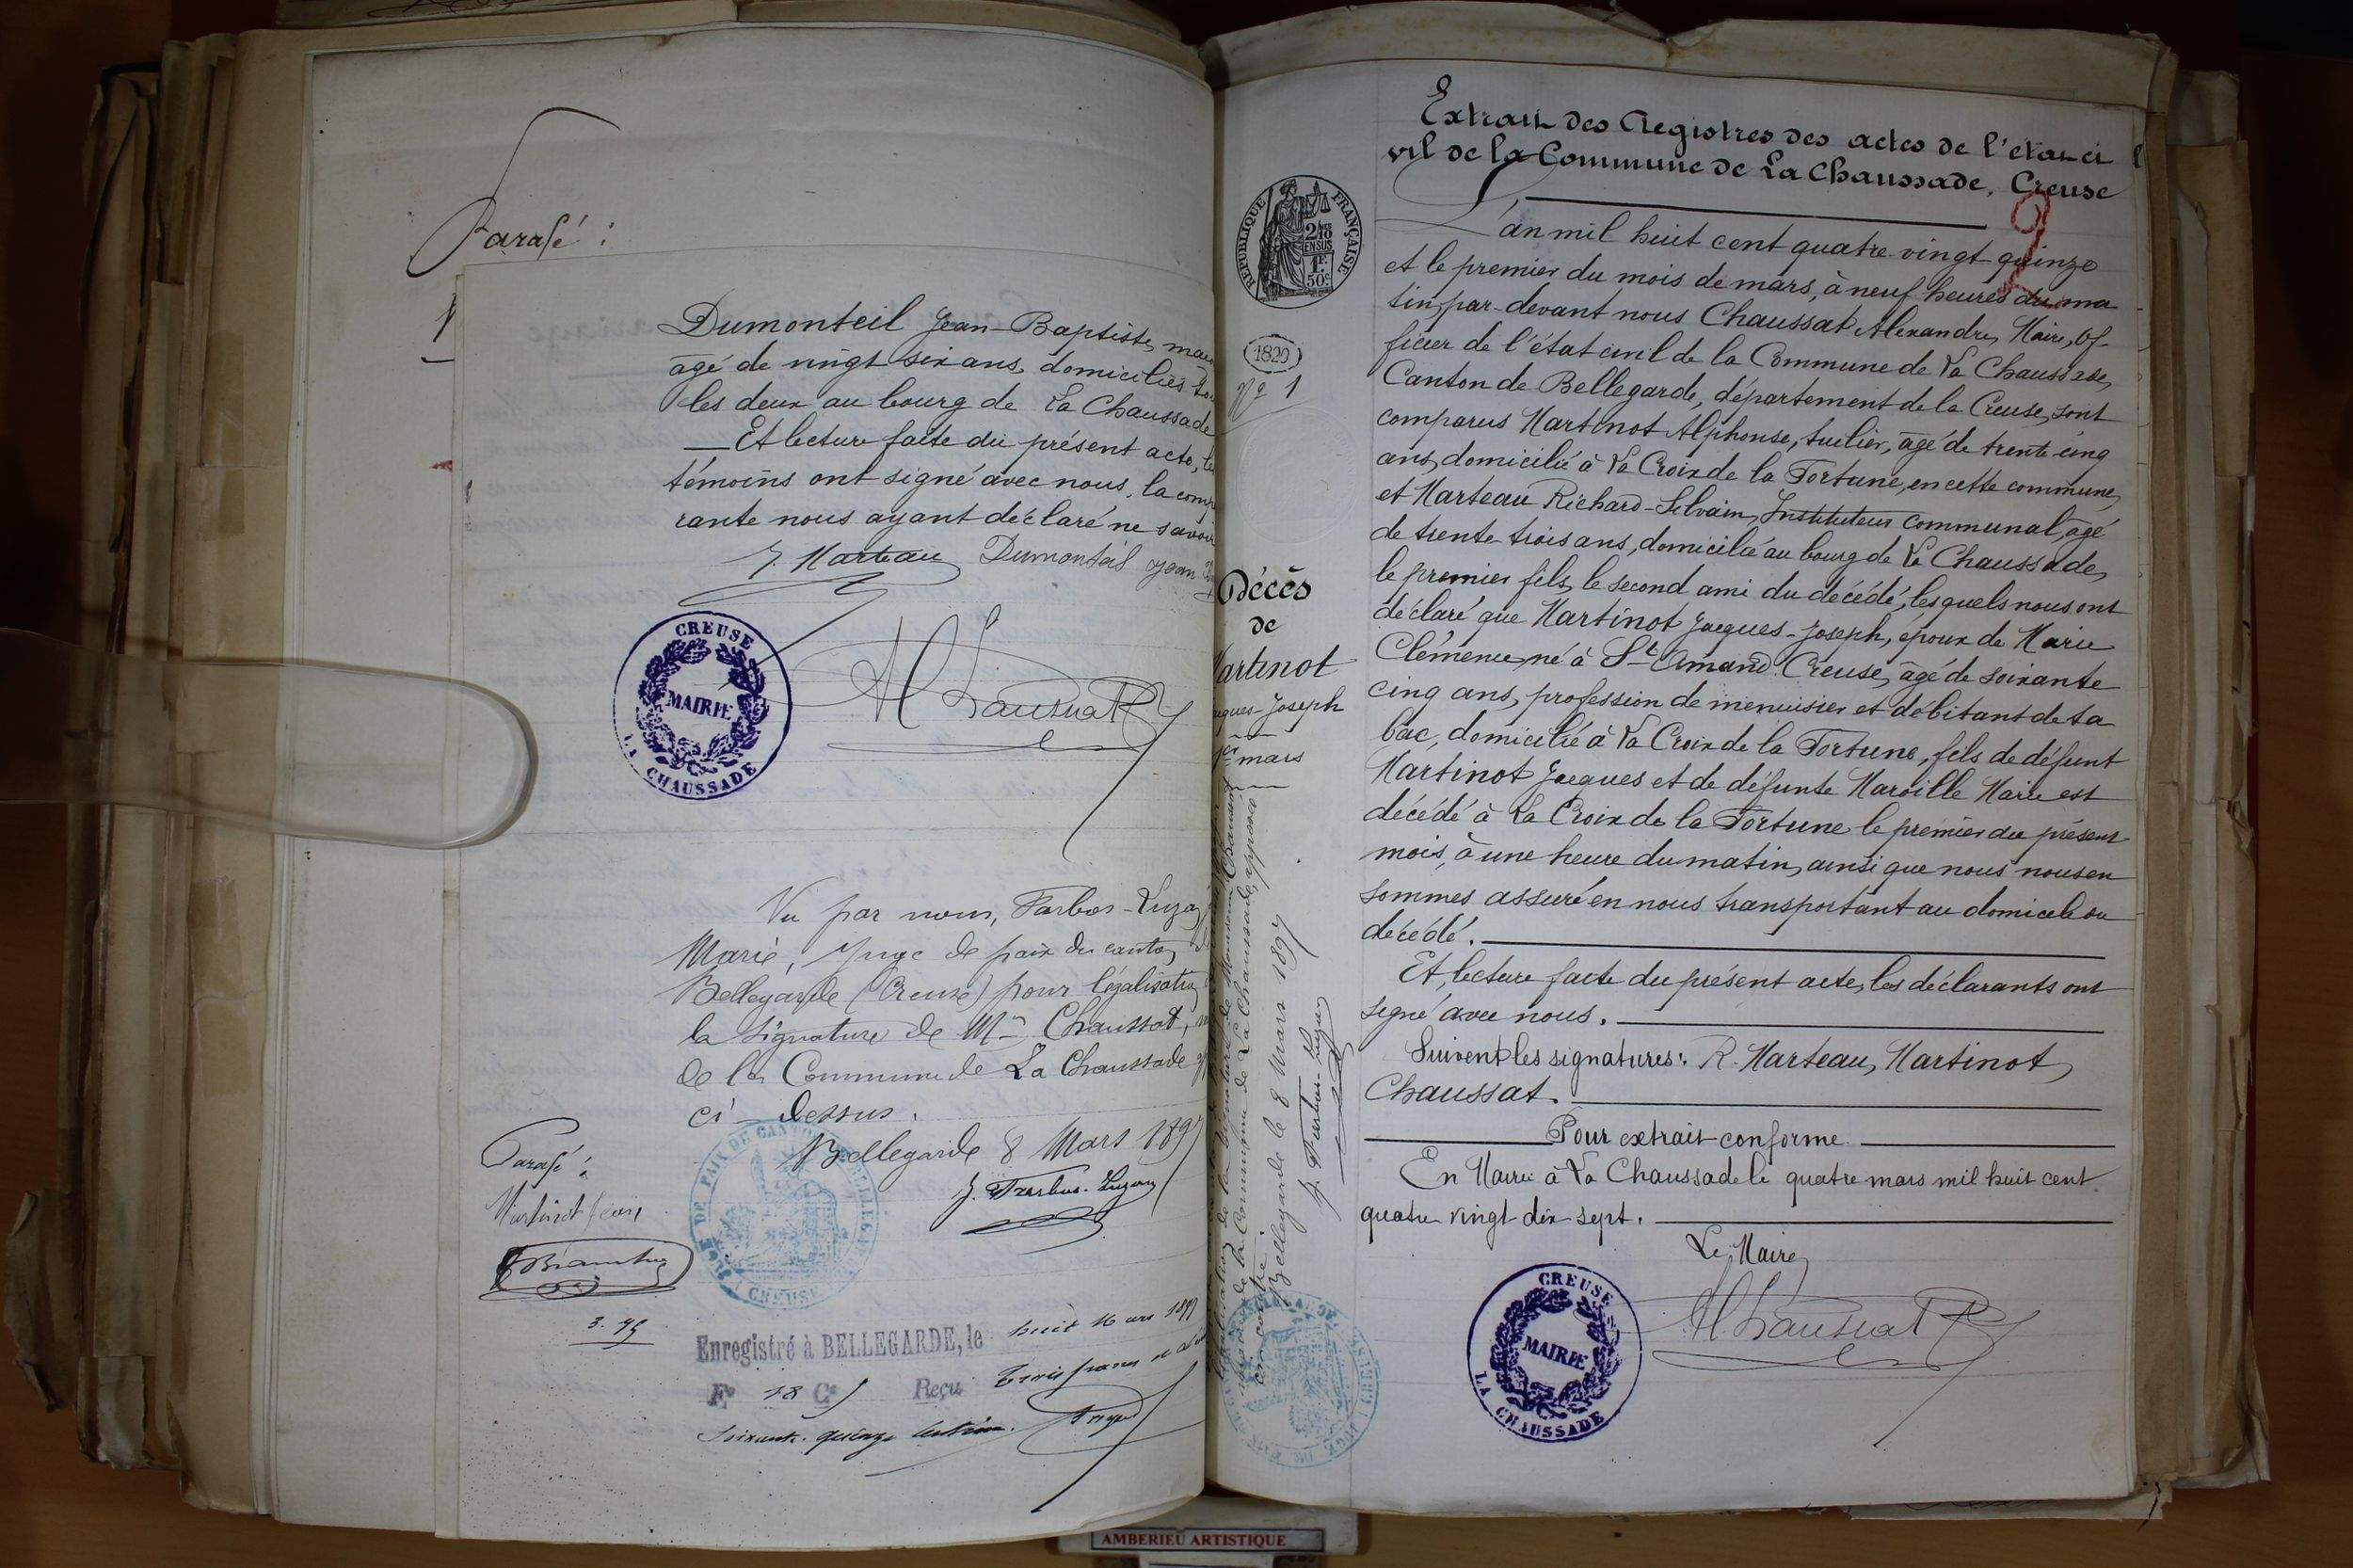 Parafé :
Dumonteil Jean-Baptiste,
âgé de vingt six ans, domiciliés
les deux au bourg de La Chaussade
Et lecture faite du présent acte, les
témoins ont signé avec nous, la comp
rante nous ayant déclaré ne savoir
Marteau Dumonteil Jean
CREUSE
MAIRIE
LA CHAUSSADE
Vu par nous, Tarbos-Luzy
Marie, Juge de paix du canton
Bellegarde (Creuse) pour légalisation
la signature de Mr Chaussat,
de la Commune de La Chaussade
ci-dessus.
Bellegarde 8 Mars 1897
Parafé :
Martinot
3.75
Enregistré à BELLEGARDE, le huit Mars 1897
Fo 18 Ce Reçu trois francs
soixante-quinze centimes.
Extrait des Registres des actes de l'état ci
vil de la Commune de La Chaussade. Creuse
RÉPUBLIQUE FRANÇAISE
2/10 EN SUS
1F 50c
1820
No 1
L'an mil huit cent quatre-vingt-quinze
et le premier du mois de mars, à neuf heures du ma
tin, par-devant nous Chaussat Alexandre, Maire, Of-
ficier de l'état civil de la Commune de La Chaussade,
Canton de Bellegarde, département de la Creuse, sont
comparus Martinot Alphonse, tuilier, âgé de trente-cinq
ans, domicilié à La Croix de la Fortune, en cette commune,
et Marteau Richard-Silvain, Instituteur communal, âgé
de trente trois ans, domicilié au bourg de La Chaussade,
le premier fils, le second ami du décédé, lesquels nous ont
déclaré que Martinot Jacques-Joseph, époux de Marie
Clémence, né à St Amand Creuse, âgé de soixante
cinq ans, profession de menuisier et débitant de ta
bac, domicilié à La Croix de la Fortune, fils de défunt
Martinot Jacques et de défunte Maroille Marie est
décédé à La Croix de la Fortune le premier du présent
mois, à une heure du matin, ainsi que nous nous en
sommes assuré en nous transportant au domicile du
décédé.
Et, lecture faite du présent acte, les déclarants ont
signé avec nous.
Suivent les signatures: R. Marteau, Martinot,
Chaussat.
Pour extrait conforme
En Mairie à La Chaussade le quatre mars mil huit cent
quatre vingt dix-sept.
Le Maire,
CREUSE
MAIRIE
LA CHAUSSADE
Décès
de
Martinot
Jacques-Joseph
1er mars
de la Commune de La Chaussade, apposée
ci contre.
Bellegarde le 8 Mars 1897
AMBERIEU ARTISTIQUE